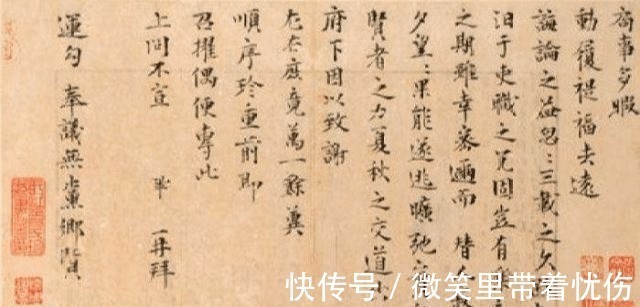 局事多暇
動履禔福去遠
誨論之益忽〻三載之久
汩于吏職之冗固豈有
之期雖幸密邇而替
夕望〻果能遂逃曠弛之
賢者之力夏秋之交道
府下因以致謝
左右庶竟萬一餘冀
順序珍重前即
召擢偶便專此
上問不宣 鞏 再拜
運勾 奉議無黨鄉賢
快传号/微笑里带着忧伤